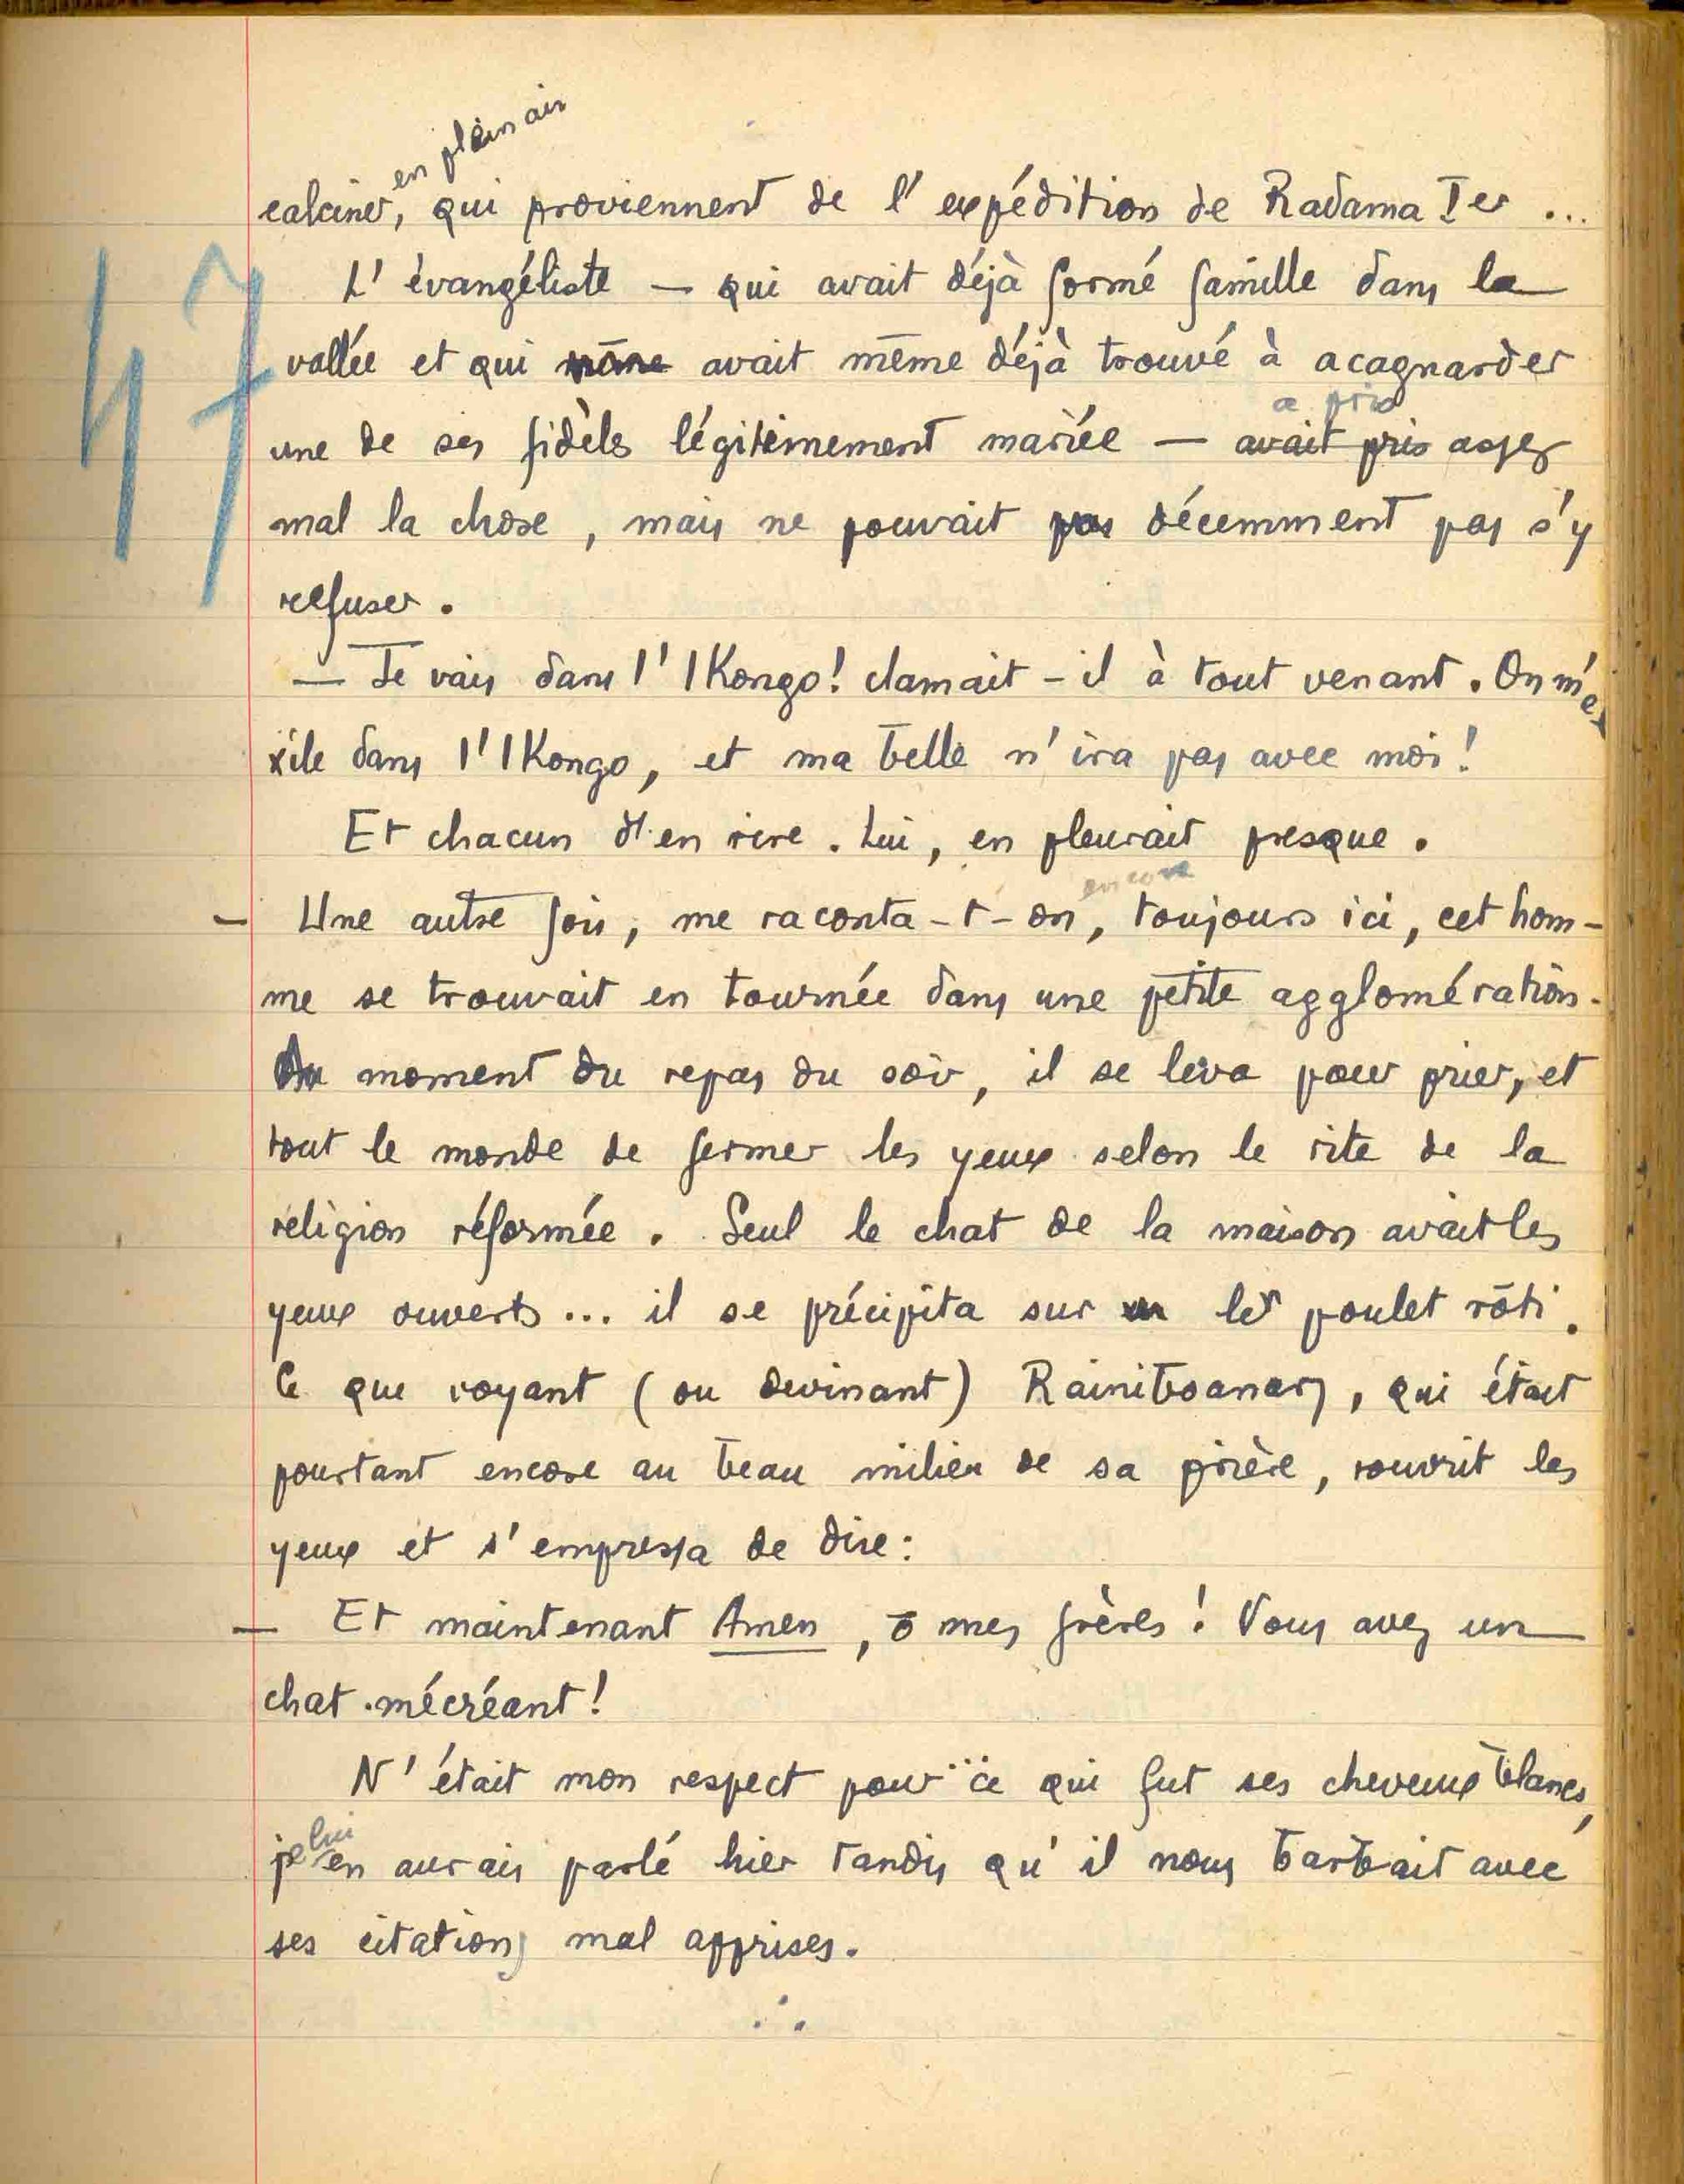 en plein air
calciner, qui proviennent de l'expédition de Radama Ier ...
47
L'évangéliste — qui avait déjà formé famille dans la
vallée et qui même avait même déjà trouvé à acagnarder
a pris
une de ses fidèles légitimement mariée — avait pris assez
mal la chose, mais ne pouvait pas décemment pas s'y
refuser.
— Je vais dans l'IKongo! clamait-il à tout venant. On m'e
xile dans l'IKongo, et ma belle n'ira pas avec moi!
Et chacun d'en rire. Lui, en pleurait presque.
encore
— Une autre fois, me raconta-t-on, toujours ici, cet hom-
me se trouvait en tournée dans une petite agglomération.
Au moment du repas du soir, il se leva pour prier, et
tout le monde de fermer les yeux selon le rite de la
religion réformée. Seul le chat de la maison avait les
yeux ouverts... il se précipita sur un le poulet rôti.
Ce que voyant (ou devinant) Rainiboanary, qui était
pourtant encore au beau milieu de sa prière, rouvrit les
yeux et s'empressa de dire:
— Et maintenant Amen, ô mes frères! Vous avez un
chat mécréant!
N'était mon respect pour ce qui fut ses cheveux blancs,
lui
je en aurais parlé hier tandis qu'il nous barbait avec
ses citations mal apprises.